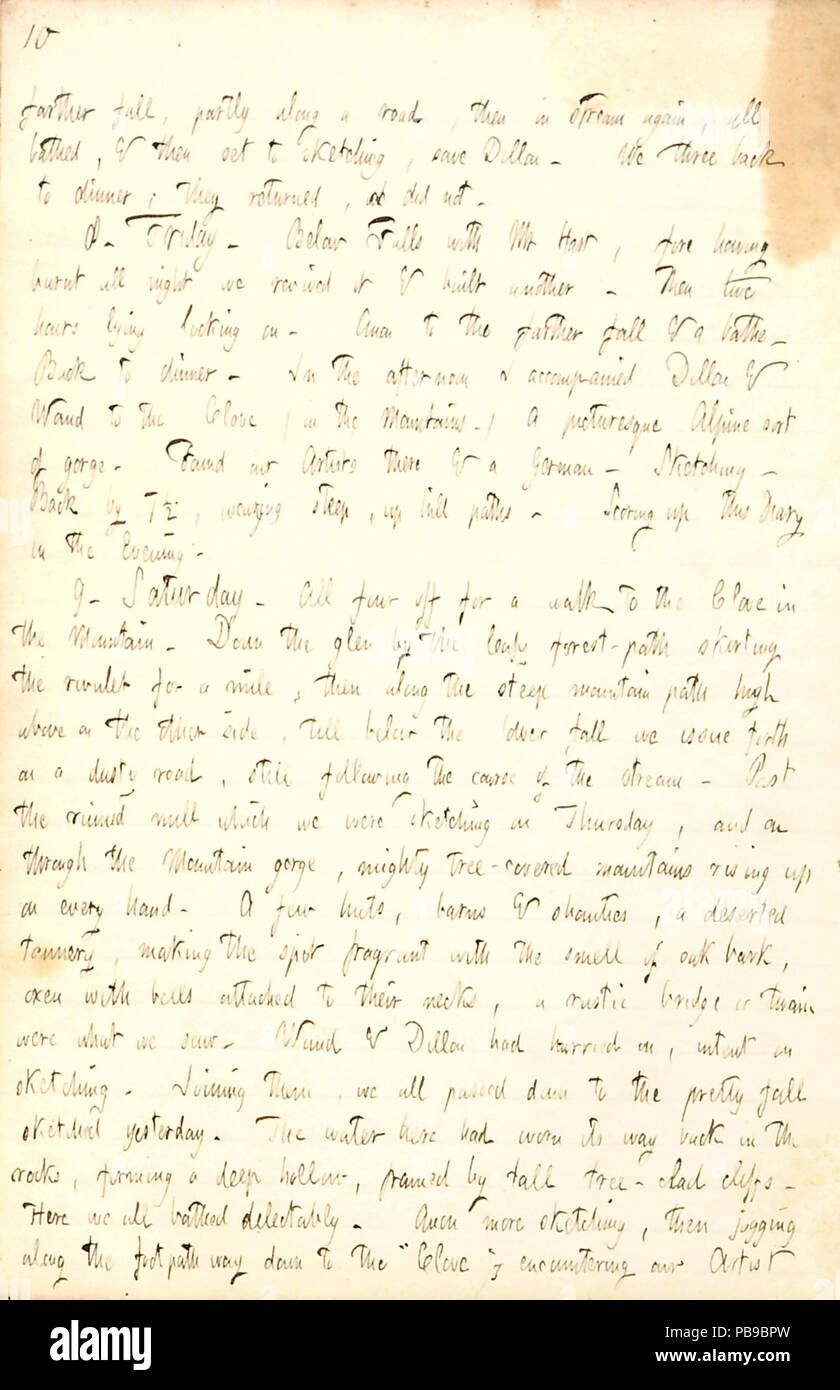 10
farther fall, partly along a road, then in stream again, all
bathed, & then set to sketching, save Dillon. We three back
to dinner; they returned, I did not.
8. Friday. Below Falls with Mr Hart, fire having
burnt all night we revived it & built another. Then two
hours lying looking on. Anon to the farther fall & a bathe.
Back to dinner. In the afternoon I accompanied Dillon &
Waud to the Clove (in the Mountains.) A picturesque Alpine sort
of gorge. Found our Artists there & a German — Sketching.
Back by 7½, wearying steep, up hill paths. Scoring up this Diary
in the Evening.
9. Saturday. All four off for a walk to the Clove in
the Mountain. Down the glen by the leafy forest-path skirting
the rivulet for a mile, then along the steep mountain path high
above on the other side, till below the lower fall we issue forth
on a dusty road, still following the course of the stream. Past
the ruined mill which we were sketching on Thursday, and on
through the Mountain gorge, mighty tree-covered mountains rising up
on every hand. A few huts, barns & shanties, a deserted
tannery, making the spot fragrant with the smell of oak bark,
oxen with bells attached to their necks, a rustic bridge or twain
were what we saw. Waud & Dillon had hurried on, intent on
sketching. Joining them, we all passed down to the pretty fall
sketched yesterday. The water here had worn its way back in the
rocks, forming a deep hollow, framed by tall tree-clad cliffs.
Here we all bathed delectably. Anon more sketching, then jogging
along the footpath way down to the "Clove"; encountering our Artist
alamy
Image ID: PB9BPW
www.alamy.com